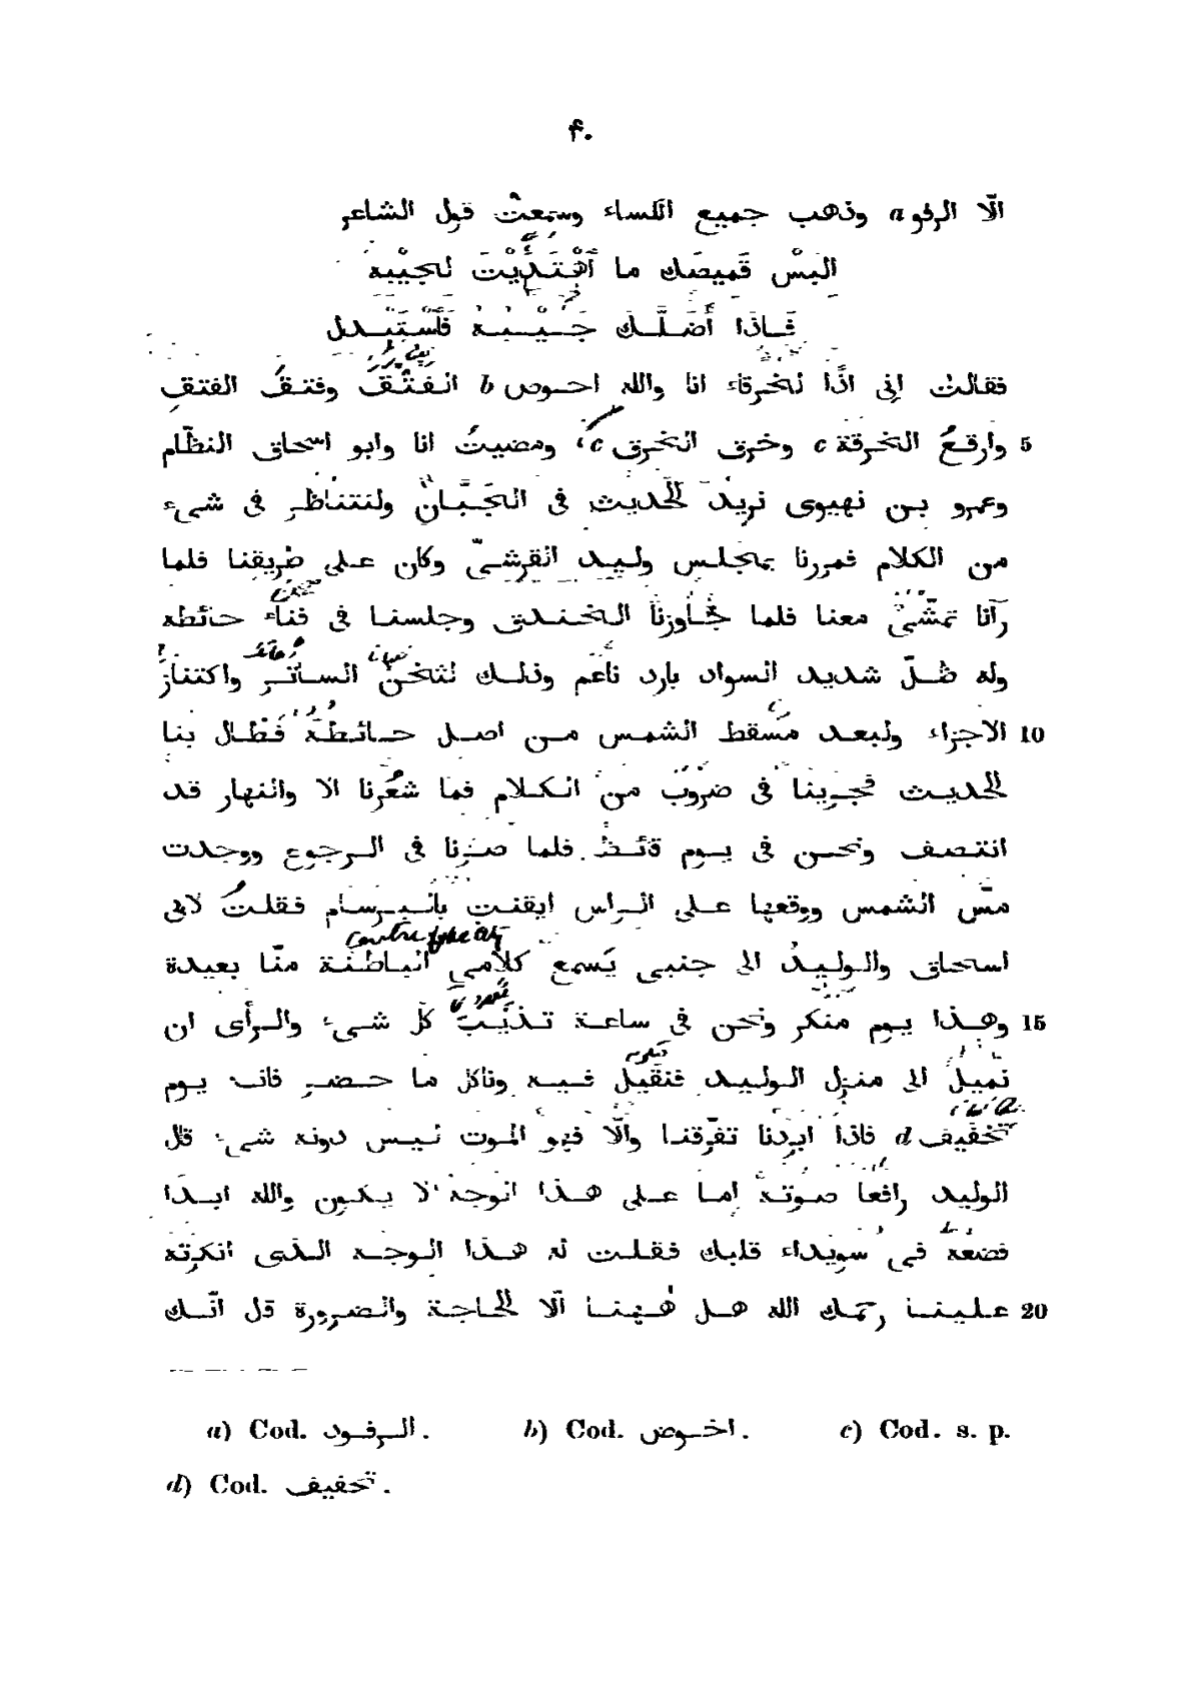 ۴۰
الّا الرفو a وذهب جميع الكساء وسمعتْ قول الشاعر
البسْ قَميصَك ما اَهْتَدَيْتَ لِجَيْبِهِ
فَاذَا أَضَلَّكَ جَيْبُهُ فَاسْتَبْدِلِ
فقالتْ انّى اذًا لخرقاء انا والله احوص b الفَتْقَ وفتقَ الفتقِ
5 وارقعُ الخرقة c وخرق الخرق c، ومضيتُ انا وابو اسحاق النظّام
وعمرو بن نهيوى نريد الحديث فى الجَبّان ولنتناظر فى شىء
من الكلام فمررنا بمجلس وليد القرشىّ وكان على طريقنا فلما
رآنا تمشّى معنا فلما جاوزنا الخندق وجلسنا فى فناء حائطه
وله ظلّ شديد السواد بارد ناعم وذلك لثخن الساتر واكتناز
10 الاجزاء ولبعد مسقط الشمس من اصل حائطه فطال بنا
الحديث فجرينا فى ضروب من الكلام فما شعرنا الا والنهار قد
انتصف ونحن فى يوم قائظ فلما صرنا فى الرجوع ووجدت
مسّ الشمس ووقعها على الراس ايقنت بالبرسام فقلتُ لابى
اسحاق والوليدُ الى جنبى يَسمع كلامى الباطنة منّا بعيدة
15 وهذا يوم منكر ونحن فى ساعة تذيب كلّ شىء والرأى ان
نميل الى منزل الوليد فنقيل فيه وناكل ما حضر فانه يوم
تخفيف d فاذا ابردنا تفرّقنا والّا فهو الموت ليس دونه شىء قال
الوليد رافعا صوته اما على هذا الوجه لا يكون والله ابدًا
فضعه فى سويداء قلبك فقلت له هذا الوجه الذى انكرته
20 علينا رحمك الله هل هٰهنا الّا الحاجة والضرورة قال انّك
a) Cod. الرفود. b) Cod. اخوص. c) Cod. s. p.
d) Cod. تحفيف.